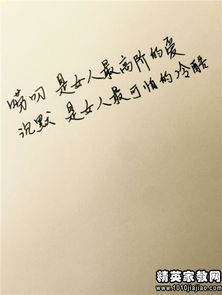 唠叨 是女人最高阶的爱
沉默 是女人最可怕的冷酷
精英家教网
www.1010jiajiao.com